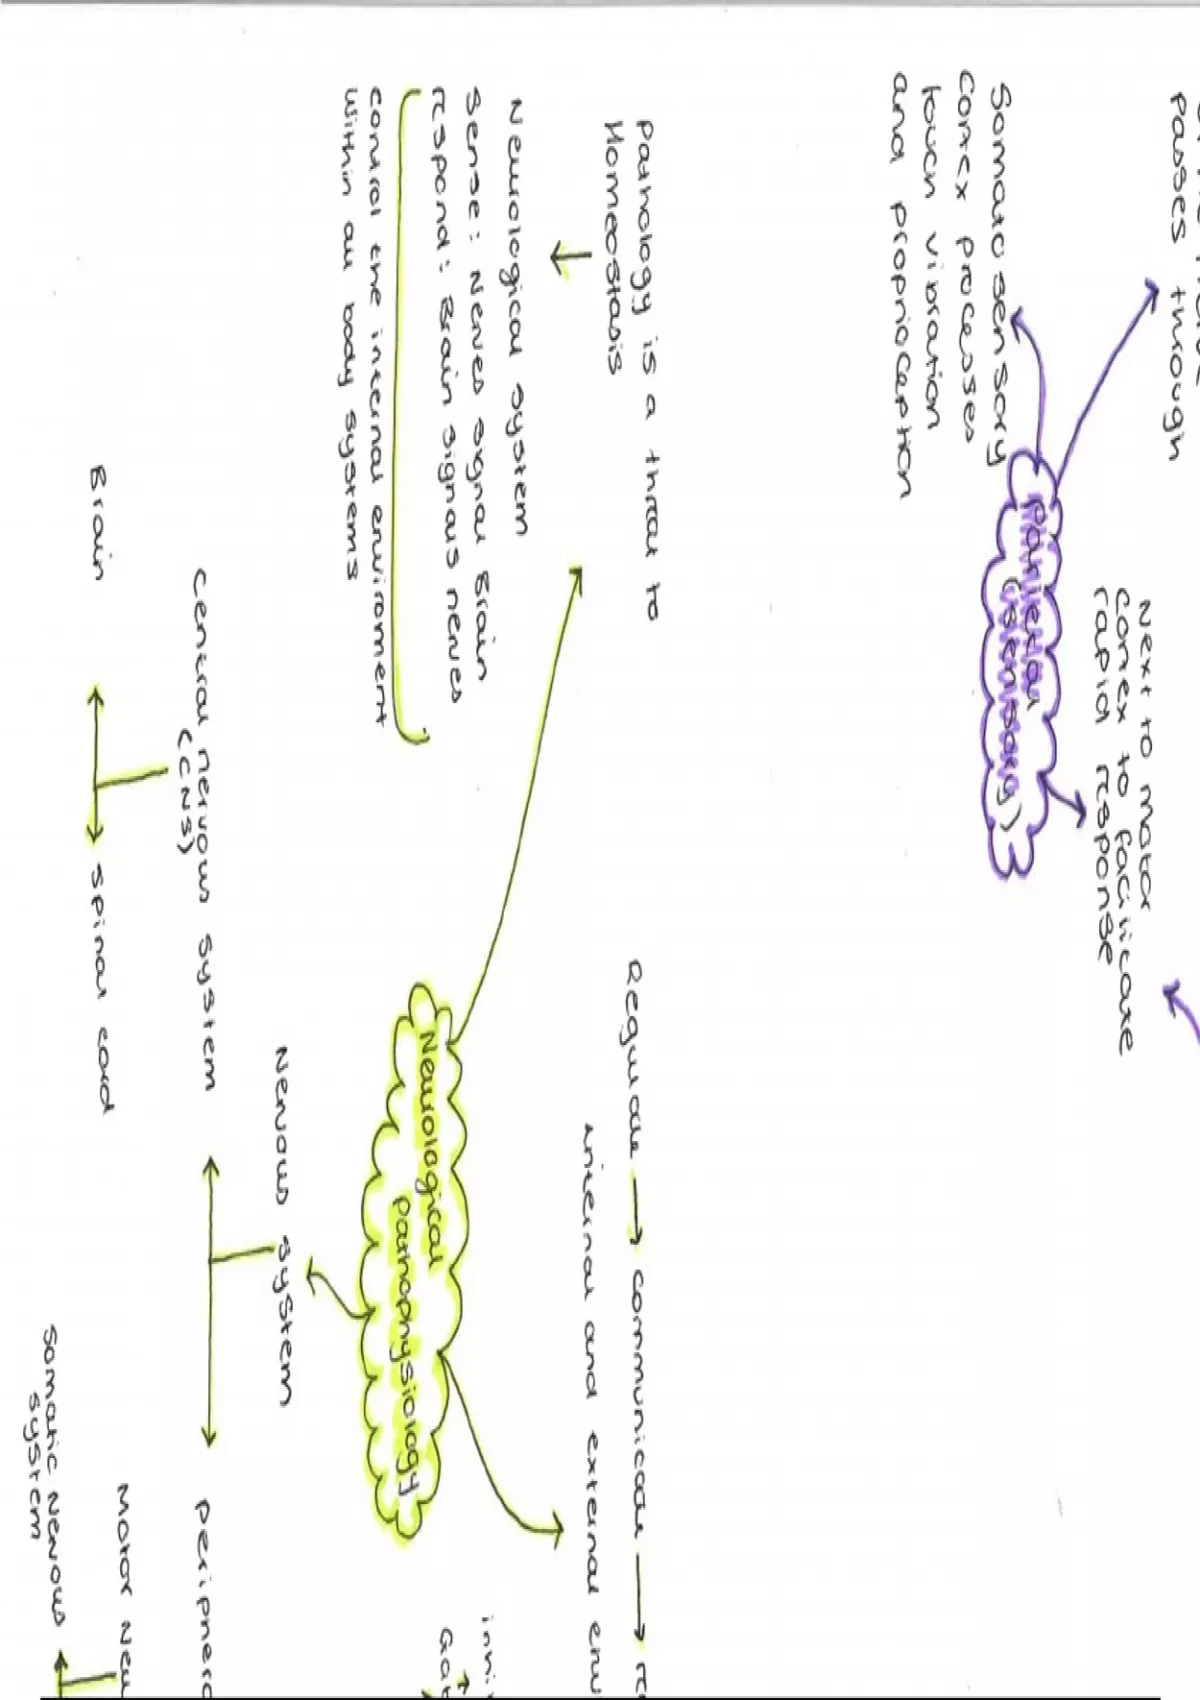 passes through
Somatosensory
cortex processes
touch vibration
and proprioception
Parietal
(sensory)
Next to motor
cortex to facilicate
rapid response
Pathology is a threat to
Homeostasis
Neurological system
Sense: Nerves signal Brain
respond: Brain signals nerves
control the internal enviroment
within all body systems
Regulate → communicate →
internal and external env
Neurological
pathophysiology
Nervous system
central nervous system
(CNS)
Brain
spinal cord
peripher
Motor Neu
somatic nervous
system